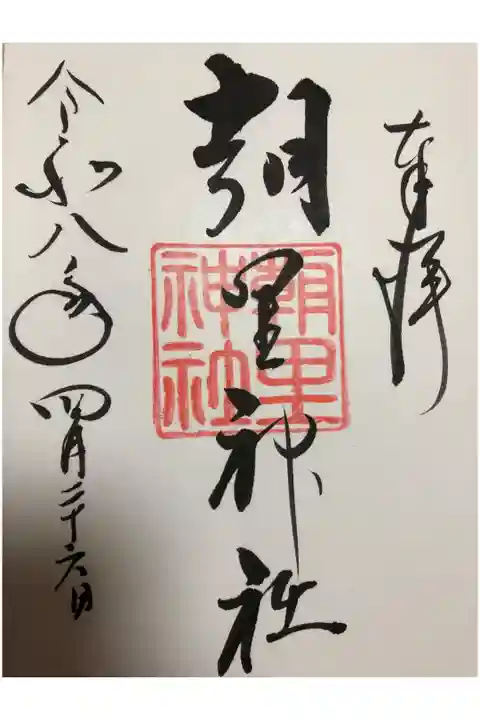 奉拝
朝里神社
朝里神社
令和八年四月二十六日